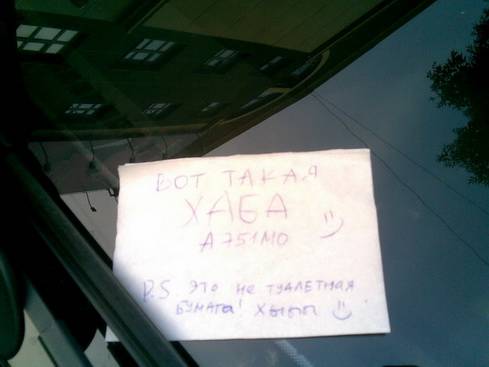 ВОТ ТАКАЯ
ХАБА
А 751МО
P.S ЭТО НЕ ТУАЛЕТНАЯ
БУМАГА! ХЫЫЫ